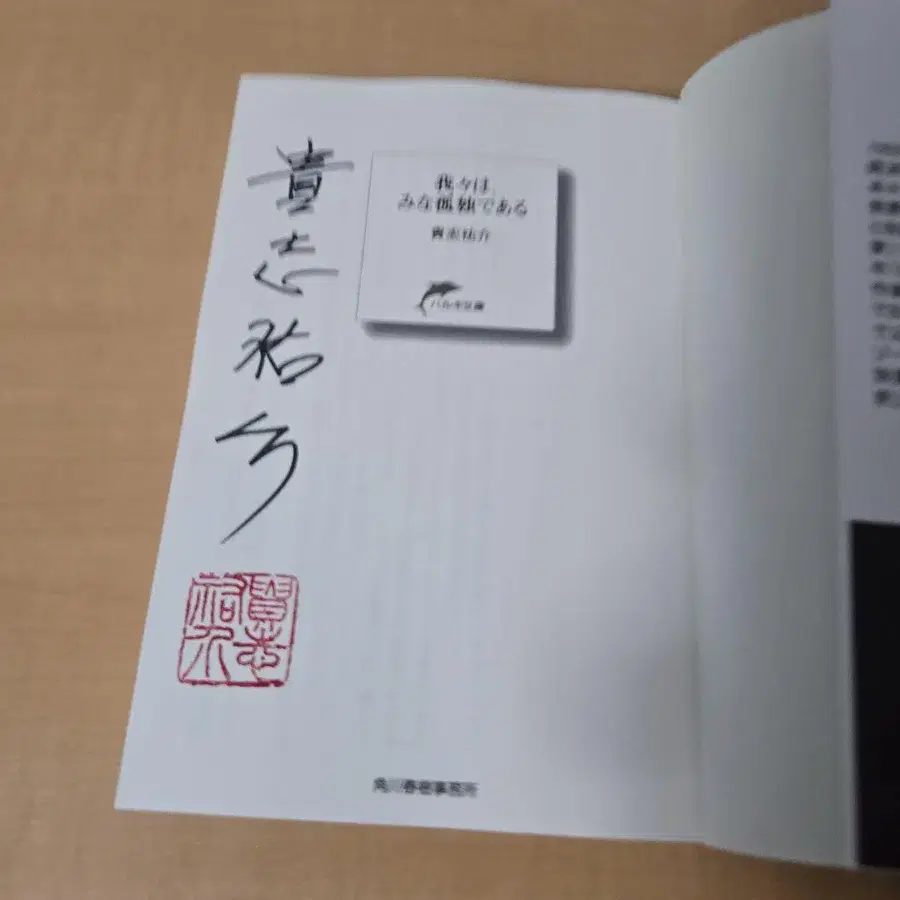 貴志祐介
我々は、
みな孤独である
貴志祐介
ハルキ文庫
貴志
祐介
角川春樹事務所